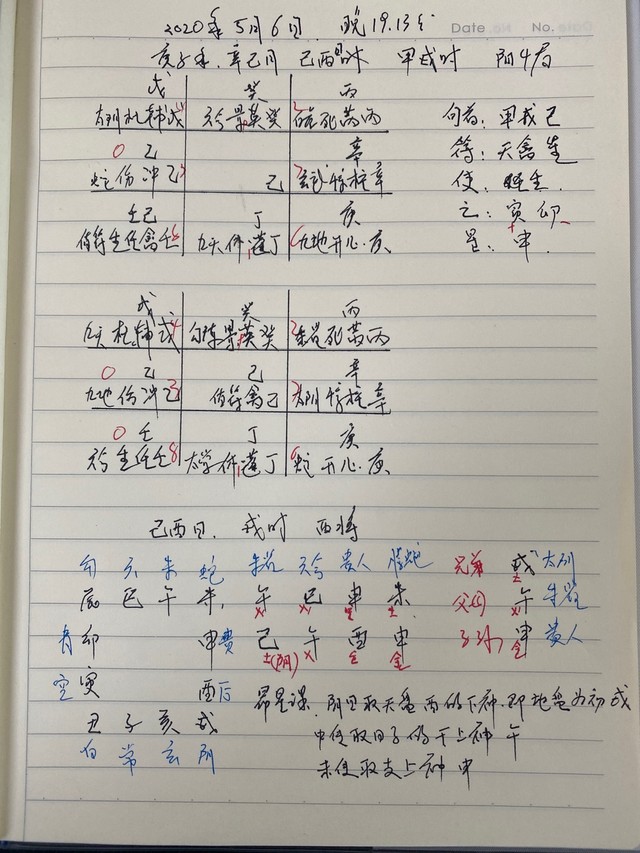 2020年5月6日. 晚19.13分
Date No.
庚子年. 辛巳月 己酉日 甲戌时 阴4局
戊 癸 丙
杜辅戊 景英癸 死芮丙
旬首: 甲戌己
0 乙 辛
符: 天禽星
蛇伤冲乙3 己 惊柱辛
使:
壬己 丁 庚
之: 寅卯
值符生任禽壬 九天休蓬丁 九地开心庚
星: 申
戊 癸 丙
九天杜辅戊4 勾陈景英癸 朱雀死芮丙
0 乙 己 辛
九地伤冲乙3 值符禽己 太阴惊柱辛
0 壬 丁 庚
生任壬8 休蓬丁 蛇开心庚
己酉日. 戌时 酉将
勾 六 朱 蛇 朱雀 贵人 腾蛇 兄弟 戌 土
辰 巳 午 未, 午 火 巳 火 申 金 未 土 父母 午 火 朱雀
青 卯 申 贵 己 土(阴) 午 火 酉 金 申 金 子孙 申 金 贵人
空 寅 酉 后 昴星课. 阴日取天盘酉的下神. 即地盘为初 戌
丑 子 亥 戌 中传取日子的干上神 午
白 常 玄 阴 末传取支上神 申